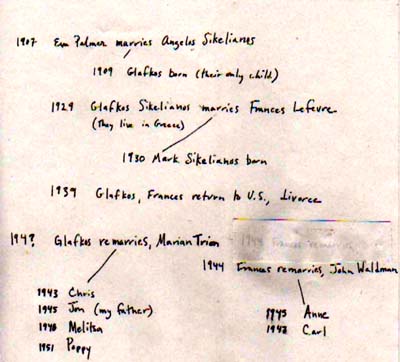 1907 Eva Palmer marries Angelos Sikelianos
1909 Glafkos born (their only child)
1929 Glafkos Sikelianos marries Frances Lefevre
(They live in Greece)
1930 Mark Sikelianos born
1939 Glafkos, Frances return to U.S., divorce
194? Glafkos remarries, Marian Trion
1944 Frances remarries,
1944 Frances remarries, John Waldman
1943 Chris
1945 Jon (my father)
Melitsa
1951 Poppy
1945 Anne
Carl